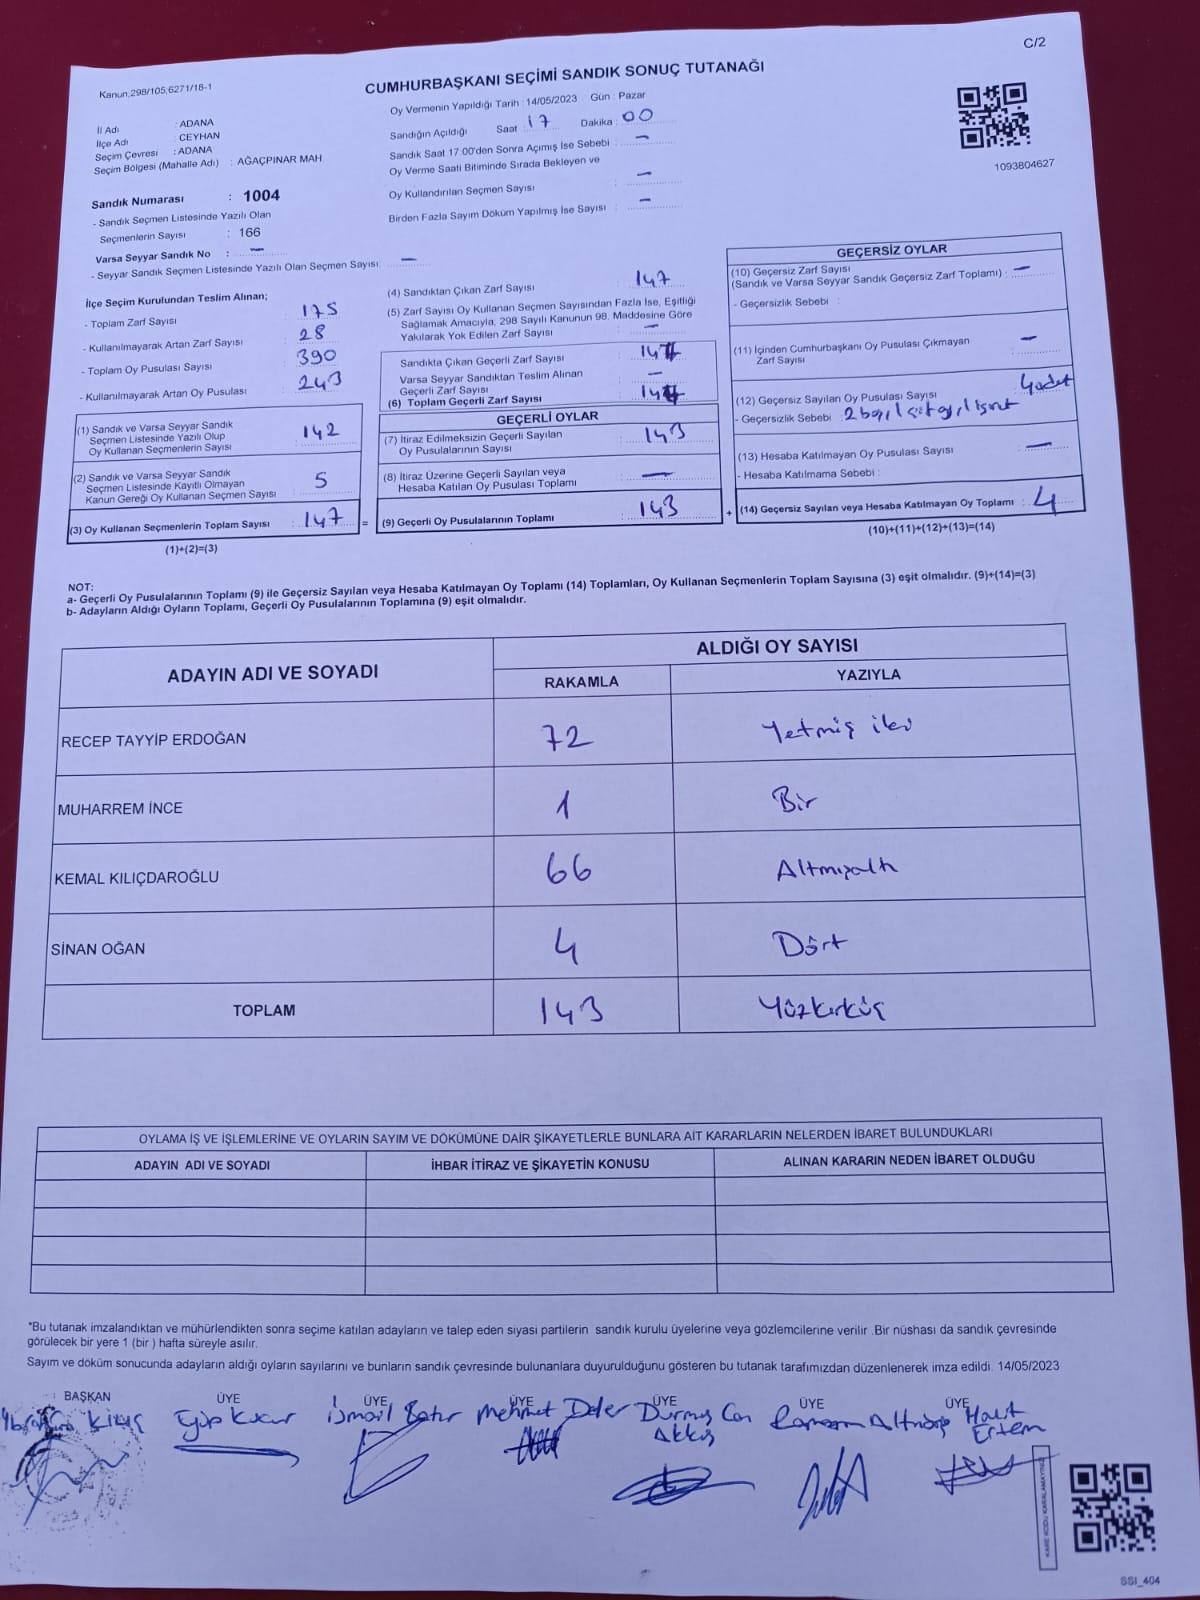 C/2
Kanun,298/105,6271/18-1
CUMHURBAŞKANI SEÇİMİ SANDIK SONUÇ TUTANAĞI
Oy Vermenin Yapıldığı Tarih : 14/05/2023 Gün : Pazar
İl Adı : ADANA
İlçe Adı : CEYHAN
Seçim Çevresi : ADANA
Seçim Bölgesi (Mahalle Adı) : AĞAÇPINAR MAH.
Sandık Numarası : 1004
- Sandık Seçmen Listesinde Yazılı Olan
Seçmenlerin Sayısı : 166
Varsa Seyyar Sandık No : —
- Seyyar Sandık Seçmen Listesinde Yazılı Olan Seçmen Sayısı: —
Sandığın Açıldığı Saat : 17 Dakika : 00
Sandık Saat 17:00'den Sonra Açımış İse Sebebi : —
Oy Verme Saati Bitiminde Sırada Bekleyen ve
Oy Kullandırılan Seçmen Sayısı : —
Birden Fazla Sayım Döküm Yapılmış İse Sayısı : —
1093804627
İlçe Seçim Kurulundan Teslim Alınan;
- Toplam Zarf Sayısı : 175
- Kullanılmayarak Artan Zarf Sayısı : 28
- Toplam Oy Pusulası Sayısı : 390
- Kullanılmayarak Artan Oy Pusulası : 243
(1) Sandık ve Varsa Seyyar Sandık
Seçmen Listesinde Yazılı Olup
Oy Kullanan Seçmenlerin Sayısı : 142
(2) Sandık ve Varsa Seyyar Sandık
Seçmen Listesinde Kayıtlı Olmayan
Kanun Gereği Oy Kullanan Seçmen Sayısı : 5
(3) Oy Kullanan Seçmenlerin Toplam Sayısı : 147 =
(1)+(2)=(3)
(4) Sandıktan Çıkan Zarf Sayısı : 147
(5) Zarf Sayısı Oy Kullanan Seçmen Sayısından Fazla İse, Eşitliği
Sağlamak Amacıyla, 298 Sayılı Kanunun 98. Maddesine Göre
Yakılarak Yok Edilen Zarf Sayısı : —
Sandıkta Çıkan Geçerli Zarf Sayısı : 147
Varsa Seyyar Sandıktan Teslim Alınan
Geçerli Zarf Sayısı : —
(6) Toplam Geçerli Zarf Sayısı : 147
GEÇERLİ OYLAR
(7) İtiraz Edilmeksizin Geçerli Sayılan
Oy Pusulalarının Sayısı : 143
(8) İtiraz Üzerine Geçerli Sayılan veya
Hesaba Katılan Oy Pusulası Toplamı : —
(9) Geçerli Oy Pusulalarının Toplamı : 143 +
GEÇERSİZ OYLAR
(10) Geçersiz Zarf Sayısı
(Sandık ve Varsa Seyyar Sandık Geçersiz Zarf Toplamı) : —
- Geçersizlik Sebebi :
(11) İçinden Cumhurbaşkanı Oy Pusulası Çıkmayan
Zarf Sayısı : —
(12) Geçersiz Sayılan Oy Pusulası Sayısı : 4 adet
- Geçersizlik Sebebi :
(13) Hesaba Katılmayan Oy Pusulası Sayısı : —
- Hesaba Katılmama Sebebi :
(14) Geçersiz Sayılan veya Hesaba Katılmayan Oy Toplamı : 4
(10)+(11)+(12)+(13)=(14)
NOT:
a- Geçerli Oy Pusulalarının Toplamı (9) ile Geçersiz Sayılan veya Hesaba Katılmayan Oy Toplamı (14) Toplamları, Oy Kullanan Seçmenlerin Toplam Sayısına (3) eşit olmalıdır. (9)+(14)=(3)
b- Adayların Aldığı Oyların Toplamı, Geçerli Oy Pusulalarının Toplamına (9) eşit olmalıdır.
ADAYIN ADI VE SOYADI ALDIĞI OY SAYISI
RAKAMLA YAZIYLA
RECEP TAYYİP ERDOĞAN 72 Yetmiş iki
MUHARREM İNCE 1 Bir
KEMAL KILIÇDAROĞLU 66 Altmışaltı
SİNAN OĞAN 4 Dört
TOPLAM 143 Yüzkırküç
OYLAMA İŞ VE İŞLEMLERİNE VE OYLARIN SAYIM VE DÖKÜMÜNE DAİR ŞİKAYETLERLE BUNLARA AİT KARARLARIN NELERDEN İBARET BULUNDUKLARI
ADAYIN ADI VE SOYADI İHBAR İTİRAZ VE ŞİKAYETİN KONUSU ALINAN KARARIN NEDEN İBARET OLDUĞU
*Bu tutanak imzalandıktan ve mühürlendikten sonra seçime katılan adayların ve talep eden siyasi partilerin sandık kurulu üyelerine veya gözlemcilerine verilir .Bir nüshası da sandık çevresinde
görülecek bir yere 1 (bir ) hafta süreyle asılır.
Sayım ve döküm sonucunda adayların aldığı oyların sayılarını ve bunların sandık çevresinde bulunanlara duyurulduğunu gösteren bu tutanak tarafımızdan düzenlenerek imza edildi. 14/05/2023
BAŞKAN ÜYE ÜYE ÜYE ÜYE ÜYE ÜYE
Kılıç Eyüp İsmail Batır Mehmet Deler Durmuş Can Halit
Akkış Ertem
KARE KODU KARALAMAYINIZ
SSI_404